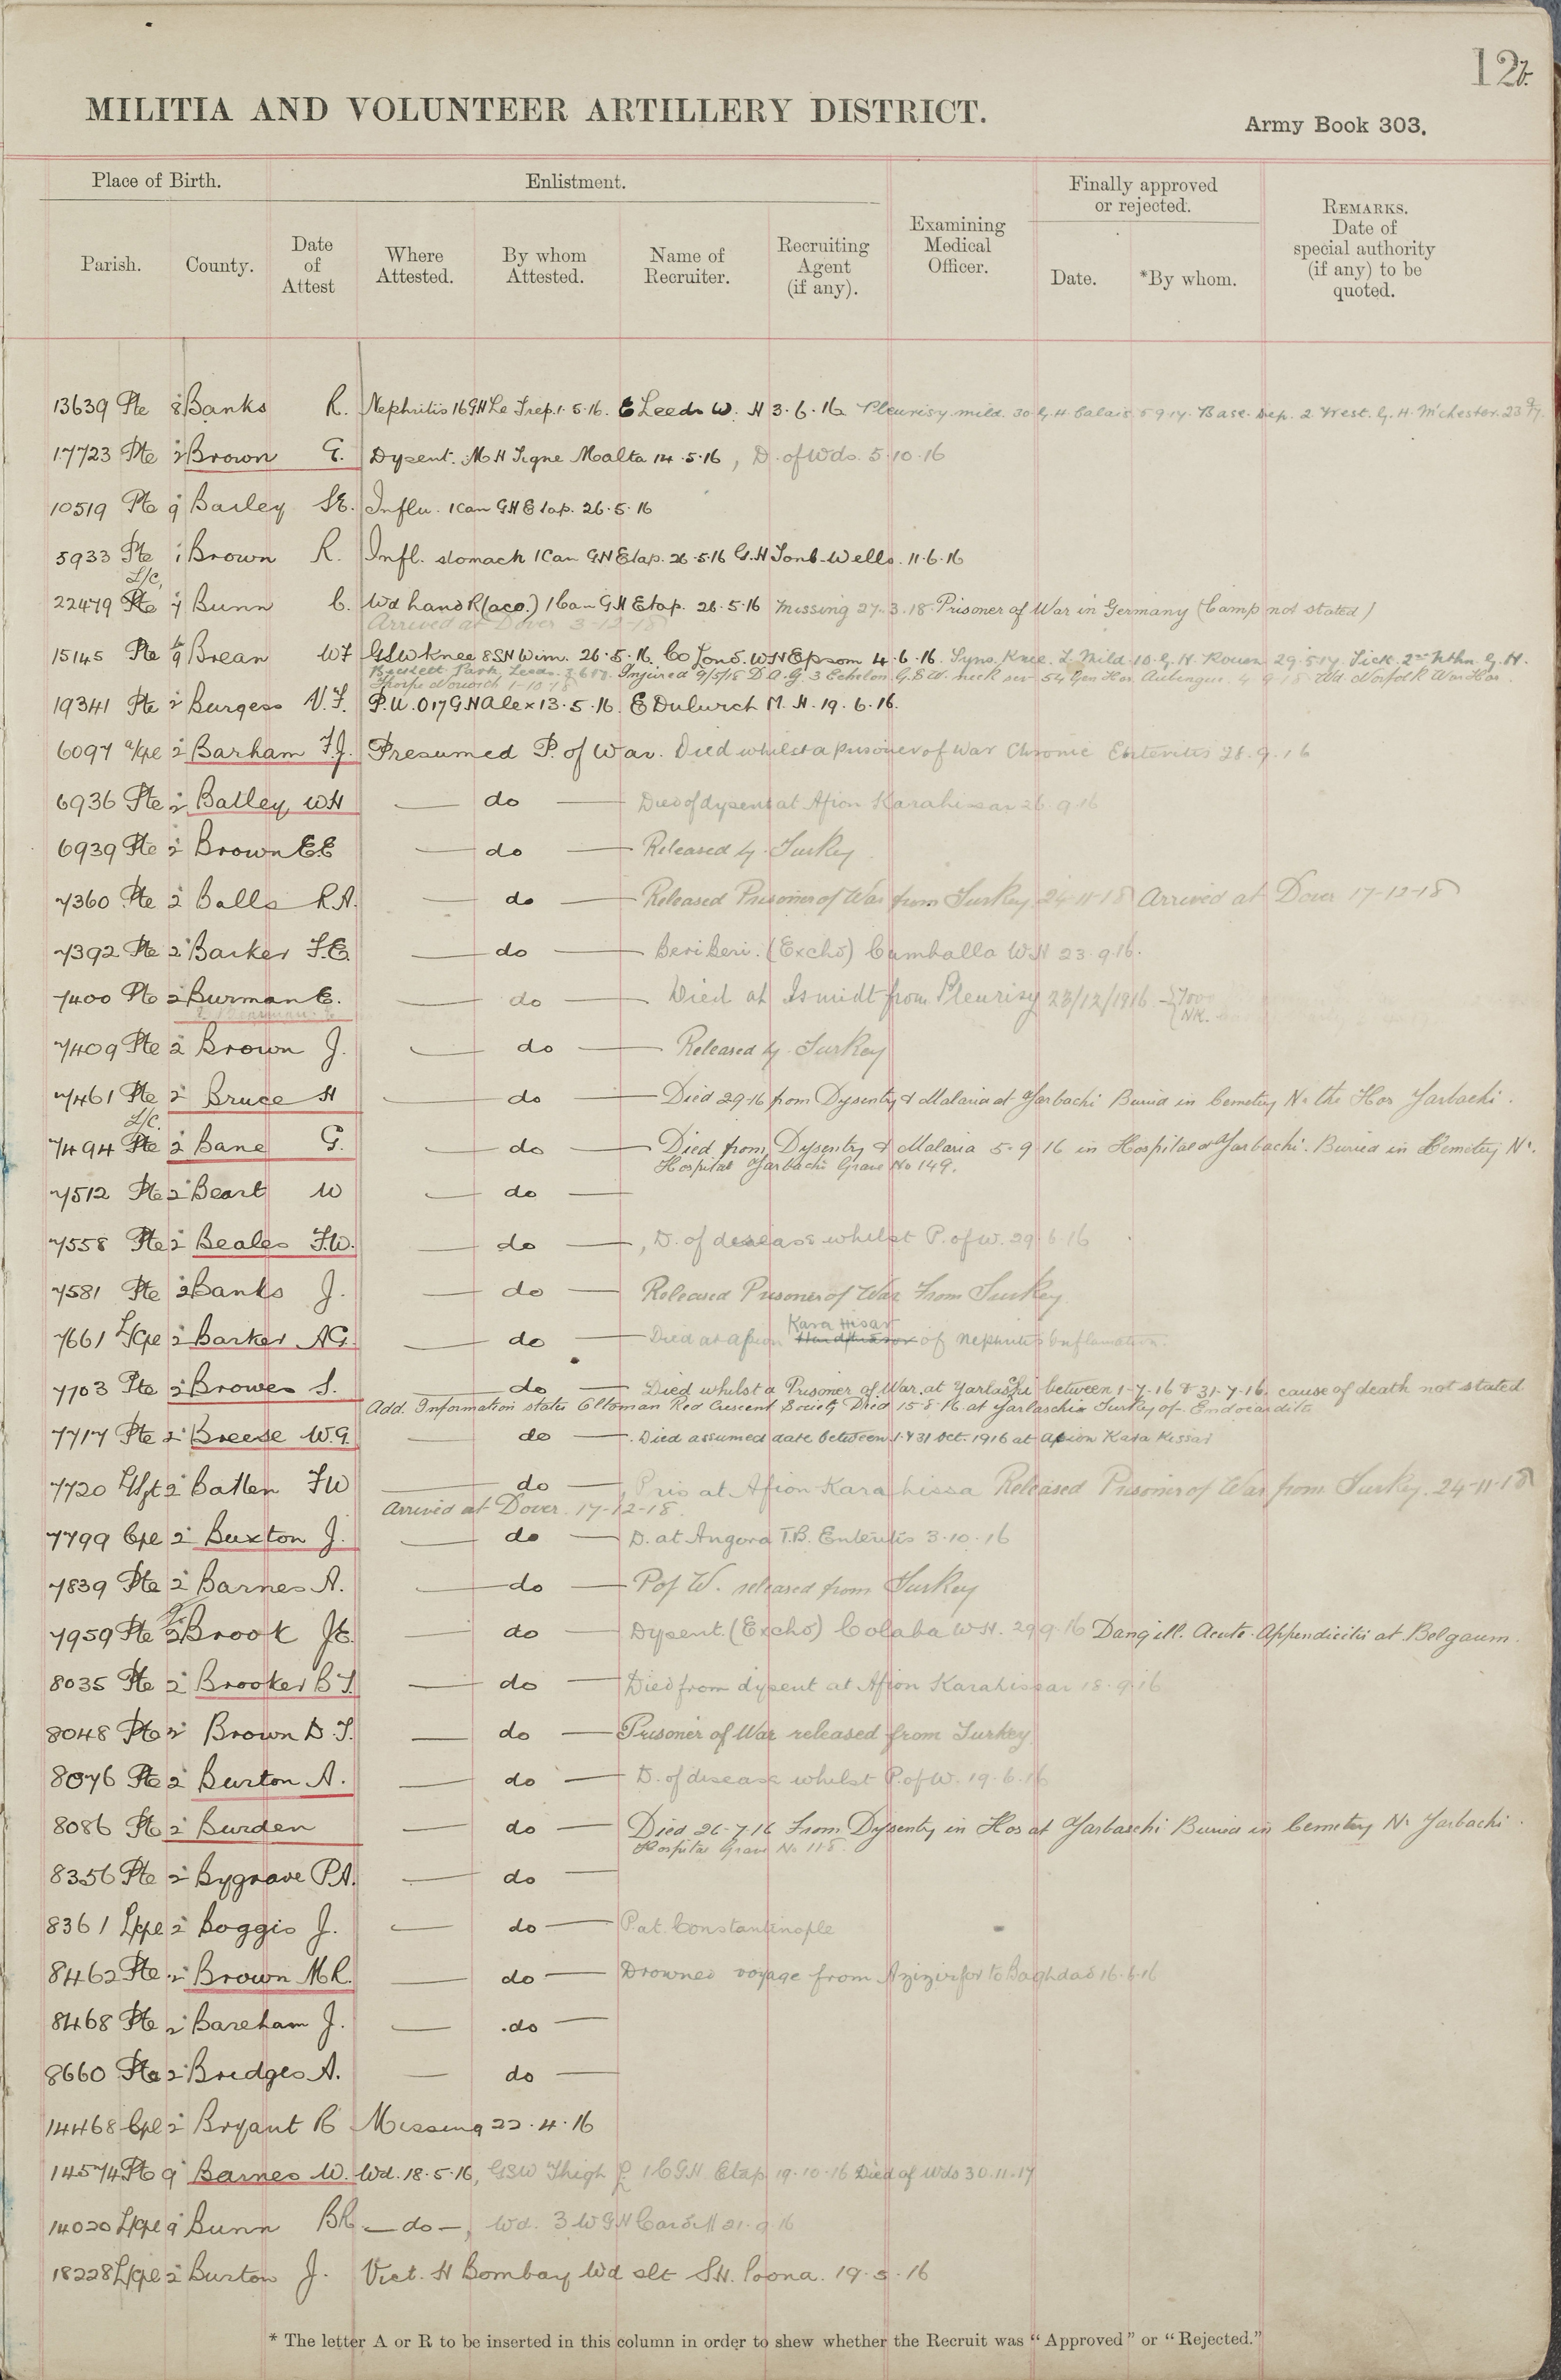 12b
MILITIA AND VOLUNTEER ARTILLERY DISTRICT.
Army Book 303.
Place of Birth.
Enlistment.
Finally approved or rejected.
Parish.
County.
Date of Attest
Where Attested.
By whom Attested.
Name of Recruiter.
Recruiting Agent (if any).
Examining Medical Officer.
Date.
*By whom.
REMARKS. Date of special authority (if any) to be quoted.
13639 Pte 8 Banks R. Nephritis 16 GH Le Trep. 1.5.16. E Leeds W. H 3.6.16 Pleurisy mild. 30 G.H. Calais 5 9 17. Base. Dep. 2 West. G. H. M'chester. 23
17723 Pte 2 Brown G. Dysent. M H Tigne Malta 14.5.16, D. of Wds. 5.10.16
10519 Pte 9 Bailey SE. Influ. 1 Can GH Etap. 26.5.16
5933 Pte 1 Brown R. Infl. stomach 1 Can GH Etap. 26.5.16 G.H Tonb-Wells. 11.6.16
L/C,
22479 Pte 7 Bunn C. Wd hand R (acc.) 1 Can GH Etap. 26.5.16 Missing 27.3.18. Prisoner of War in Germany (Camp not stated)
Arrived at Dover 3-12-18
15145 Pte 9 Brean WF GSW Knee 8 SH Wim. 26.5.16. Co Lond. WH Epsom 4.6.16. Syno. Knee. L Mild 10 G. H. Rouen 29.5.17. Sick. 2nd Nthn. G. H.
Beckett Park, Leeds. Injured 9/5/18 D.A.G. 3 Echelon G.S.W. neck sev 54 Gen Hos. Aubengue. 4 9 18 Wd. Norfolk War Hos.
Thorpe Norwich 1-10-18
19341 Pte 2 Burgess V.F. P.U.O 17 GH Alex 13.5.16. E Dulwich M. H. 19.6.16.
6097 a/Cpl 2 Barham F.J. Presumed P. of War. Died whilst a prisoner of War Chronic Enteritis 28.9.16
6936 Pte 2 Batley WH — do — Died of dysent at Afion Karahissar 26.9.16
6939 Pte 2 Brown E.E — do — Released by Turkey.
7360 Pte 2 Balls R.A. — do — Released Prisoner of War from Turkey 24-11-18 Arrived at Dover 17-12-18
7392 Pte 2 Barker F.E. — do — Beri Beri. (Exchd) Cumballa W.H 23.9.16.
7400 Pte 2 Burman E. — do — Died at Ismidt from Pleurisy 23/12/1916.
7409 Pte 2 Brown J. — do — Released by Turkey
7461 Pte 2 Bruce H — do — Died 2.9.16 from Dysentry & Malaria at Yarbachi Buried in Cemetery Nr the Hos Yarbachi.
L/C.
7494 Pte 2 Bane G. — do — Died from Dysentry & Malaria 5.9.16 in Hospital at Yarbachi. Buried in Cemetery Nr.
Hospital Yarbachi Grave No 149.
7512 Pte 2 Beart W — do —
7558 Pte 2 Beales F.W. — do —, D. of disease whilst P. of W. 29.6.16
7581 Pte 2 Banks J. — do — Released Prisoner of War From Turkey
7661 L/Cpl 2 Barker AG. — do — Died at Afion Kara Hisar of Nephritis Inflamation.
7703 Pte 2 Browes S. — do — Died whilst a Prisoner of War at Yarlashi between 1-7-16 & 31-7-16. cause of death not stated
Add. Information states Ottoman Red Crescent Society Died 15-8-16. at Yarlaschi Turkey of Endocardits
7717 Pte 2 Breese W.G. — do — Died assumed date between 1 & 31 Oct. 1916 at Afion Kara Kissar
7720 L/Sgt 2 Batten FW — do — Pris at Afion Kara hissa Released Prisoner of War from Turkey. 24-11-18
Arrived at Dover. 17-12-18.
7799 Cpl 2 Buxton J. — do — D. at Angora T.B. Enteritis 3.10.16
7839 Pte 2 Barnes A. — do — P of W. released from Turkey
7959 Pte 2 Brook JE. — do — Dysent. (Exchd) Colaba W.H. 29.9.16 Dang ill. Acute. Appendicitis at Belgaum.
8035 Pte 2 Brooker B.T. — do — Died from dysent at Afion Karahissar 18.9.16
8048 Pte 2 Brown D.T. — do — Prisoner of War released from Turkey
8076 Pte 2 Burton A. — do — D. of disease whilst P. of W. 19.6.16
8086 Pte 2 Burden — do — Died 26-7-16 From Dysentry in Hos at Yarbaschi Buried in Cemetery Nr Yarbachi.
Hospital Grave No 118.
8356 Pte 2 Bygrave P.A. — do —
8361 L/Cpl 2 Boggis J. — do — P. at Constantinople
8462 Pte 2 Brown M.R. — do — Drowned voyage from Azizirfor to Baghdad 16.6.16
8468 Pte 2 Bareham J. — do —
8660 Pte 2 Bridges A. — do —
14468 Cpl 2 Bryant R Missing 22.4.16
14574 Pte 9 Barnes W. Wd. 18.5.16, GSW Thigh L 1 C G.H. Etap 19.10.16 Died of Wds 30.11.17
14020 L/Cpl 9 Bunn BR — do —, Wd. 3 W G H Cardiff 21.9.16
18228 L/Cpl 2 Burton J. Vict. H Bombay Wd slt S.H. Poona. 19.5.16
* The letter A or R to be inserted in this column in order to shew whether the Recruit was "Approved" or "Rejected."